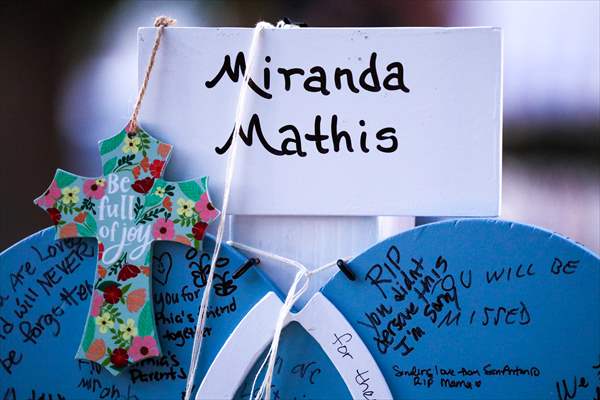 Miranda
Mathis
Be
full
of joy
Are Loved
will NEVER
be forgotten
you for
friend
together
Parents
RIP
you didn't
deserve this
I'm sorry
YOU WILL BE
MISSED
Sending love from San Antonio
RIP Mama
for the